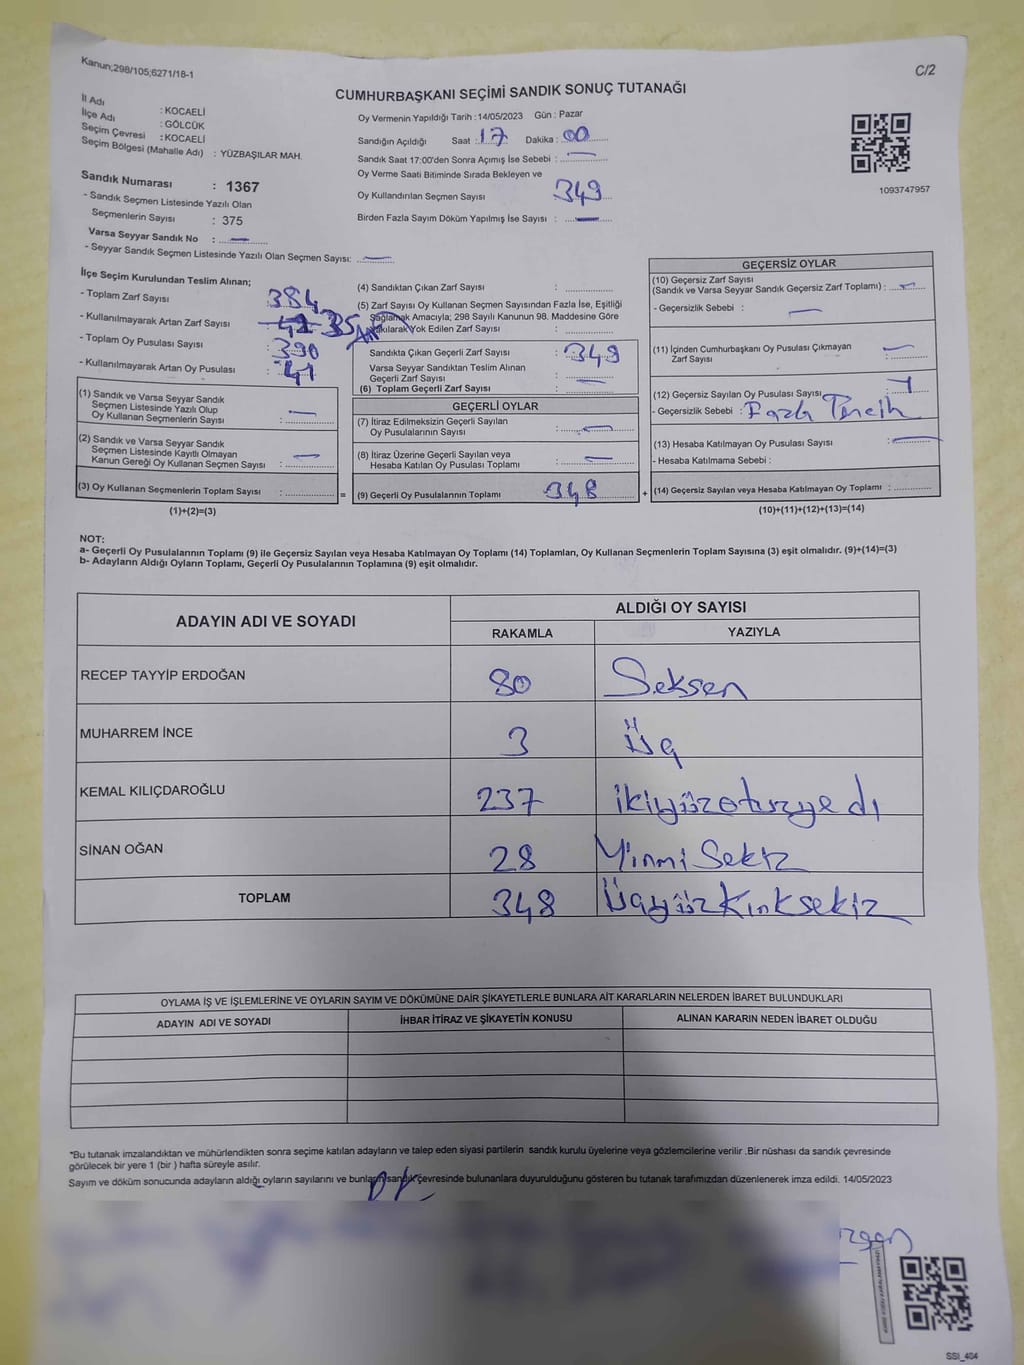 Kanun;298/105;6271/18-1
C/2
CUMHURBAŞKANI SEÇİMİ SANDIK SONUÇ TUTANAĞI
İl Adı : KOCAELİ
İlçe Adı : GÖLCÜK
Seçim Çevresi : KOCAELİ
Seçim Bölgesi (Mahalle Adı) : YÜZBAŞILAR MAH.
Sandık Numarası : 1367
- Sandık Seçmen Listesinde Yazılı Olan
Seçmenlerin Sayısı : 375
Varsa Seyyar Sandık No : —
- Seyyar Sandık Seçmen Listesinde Yazılı Olan Seçmen Sayısı: —
Oy Vermenin Yapıldığı Tarih :14/05/2023 Gün : Pazar
Sandığın Açıldığı Saat : 17 Dakika : 00
Sandık Saat 17:00'den Sonra Açımış İse Sebebi : —
Oy Verme Saati Bitiminde Sırada Bekleyen ve
Oy Kullandırılan Seçmen Sayısı 349
Birden Fazla Sayım Döküm Yapılmış İse Sayısı : —
1093747957
İlçe Seçim Kurulundan Teslim Alınan;
- Toplam Zarf Sayısı : 384
- Kullanılmayarak Artan Zarf Sayısı 35
- Toplam Oy Pusulası Sayısı : 390
- Kullanılmayarak Artan Oy Pusulası : 41
(1) Sandık ve Varsa Seyyar Sandık
Seçmen Listesinde Yazılı Olup
Oy Kullanan Seçmenlerin Sayısı : —
(2) Sandık ve Varsa Seyyar Sandık
Seçmen Listesinde Kayıtlı Olmayan
Kanun Gereği Oy Kullanan Seçmen Sayısı : —
(3) Oy Kullanan Seçmenlerin Toplam Sayısı :
(1)+(2)=(3)
=
(4) Sandıktan Çıkan Zarf Sayısı :
(5) Zarf Sayısı Oy Kullanan Seçmen Sayısından Fazla İse, Eşitliği
Sağlamak Amacıyla; 298 Sayılı Kanunun 98. Maddesine Göre
Yakılarak Yok Edilen Zarf Sayısı :
Sandıkta Çıkan Geçerli Zarf Sayısı : 349
Varsa Seyyar Sandıktan Teslim Alınan
Geçerli Zarf Sayısı : —
(6) Toplam Geçerli Zarf Sayısı :
GEÇERLİ OYLAR
(7) İtiraz Edilmeksizin Geçerli Sayılan
Oy Pusulalarının Sayısı : —
(8) İtiraz Üzerine Geçerli Sayılan veya
Hesaba Katılan Oy Pusulası Toplamı : —
(9) Geçerli Oy Pusulalarının Toplamı 348
+
GEÇERSİZ OYLAR
(10) Geçersiz Zarf Sayısı
(Sandık ve Varsa Seyyar Sandık Geçersiz Zarf Toplamı) : —
- Geçersizlik Sebebi : —
(11) İçinden Cumhurbaşkanı Oy Pusulası Çıkmayan
Zarf Sayısı : —
(12) Geçersiz Sayılan Oy Pusulası Sayısı : 1
- Geçersizlik Sebebi : Fazla Tercih
(13) Hesaba Katılmayan Oy Pusulası Sayısı : —
- Hesaba Katılmama Sebebi :
(14) Geçersiz Sayılan veya Hesaba Katılmayan Oy Toplamı :
(10)+(11)+(12)+(13)=(14)
NOT:
a- Geçerli Oy Pusulalarının Toplamı (9) ile Geçersiz Sayılan veya Hesaba Katılmayan Oy Toplamı (14) Toplamları, Oy Kullanan Seçmenlerin Toplam Sayısına (3) eşit olmalıdır. (9)+(14)=(3)
b- Adayların Aldığı Oyların Toplamı, Geçerli Oy Pusulalarının Toplamına (9) eşit olmalıdır.
ADAYIN ADI VE SOYADI ALDIĞI OY SAYISI
RAKAMLA YAZIYLA
RECEP TAYYİP ERDOĞAN 80 Seksen
MUHARREM İNCE 3 Üç
KEMAL KILIÇDAROĞLU 237 ikiyüzotuzyedi
SİNAN OĞAN 28 Yirmi Sekiz
TOPLAM 348 Üçyüz Kırksekiz
OYLAMA İŞ VE İŞLEMLERİNE VE OYLARIN SAYIM VE DÖKÜMÜNE DAİR ŞİKAYETLERLE BUNLARA AİT KARARLARIN NELERDEN İBARET BULUNDUKLARI
ADAYIN ADI VE SOYADI İHBAR İTİRAZ VE ŞİKAYETİN KONUSU ALINAN KARARIN NEDEN İBARET OLDUĞU
*Bu tutanak imzalandıktan ve mühürlendikten sonra seçime katılan adayların ve talep eden siyasi partilerin sandık kurulu üyelerine veya gözlemcilerine verilir .Bir nüshası da sandık çevresinde
görülecek bir yere 1 (bir ) hafta süreyle asılır.
Sayım ve döküm sonucunda adayların aldığı oyların sayılarını ve bunların sandık çevresinde bulunanlara duyurulduğunu gösteren bu tutanak tarafımızdan düzenlenerek imza edildi. 14/05/2023
SSI_404